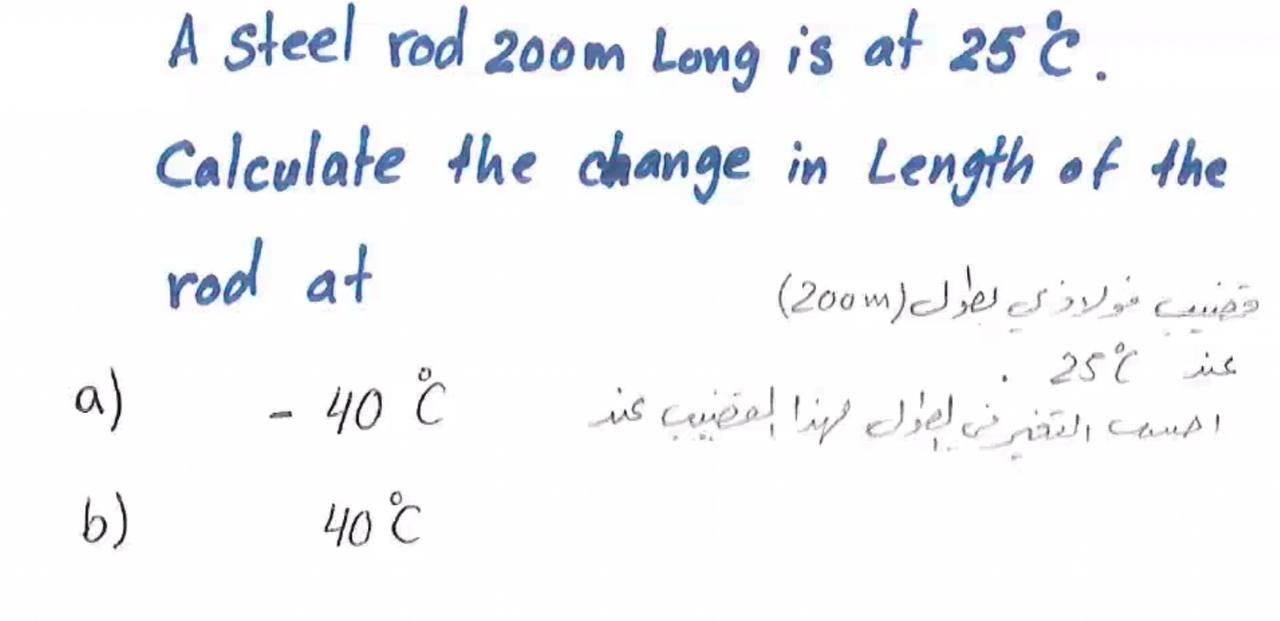 A steel rod 200m Long is at 25°C.
Calculate the change in Length of the
rod at
قضيب فولاذي بطول (200m)
عند 25°C .
احسب التغير في الطول لهذا القضيب عند
a) - 40°C
b) 40°C